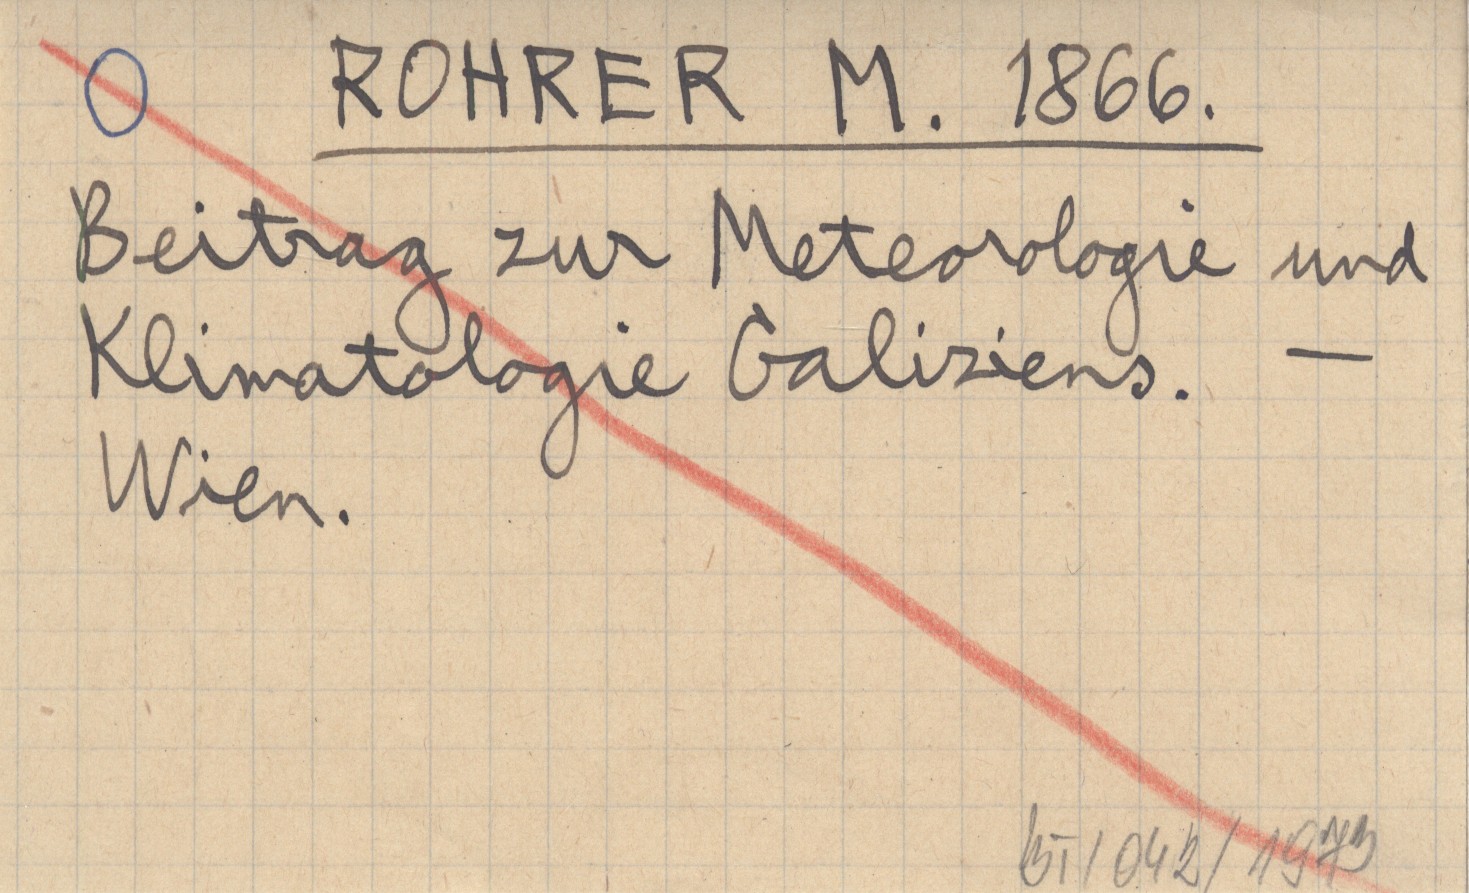 ROHRER M. 1866.
Beitrag zur Meteorologie und
Klimatologie Galiziens. —
Wien.
/ 042 / 1973